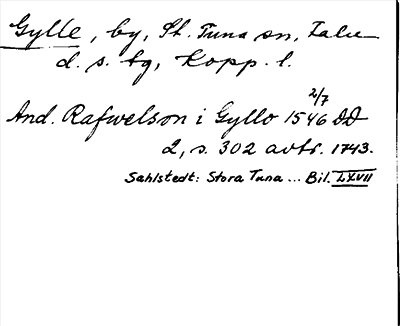 Gylle, by, St. Tuna sn, Falu
d. s. tg, Kopp. l.
And. Rafwelson i Gyllo 1546 2/7 DD
2, s. 302 avtr. 1743.
Sahlstedt: Stora Tuna ... Bil. LXVII